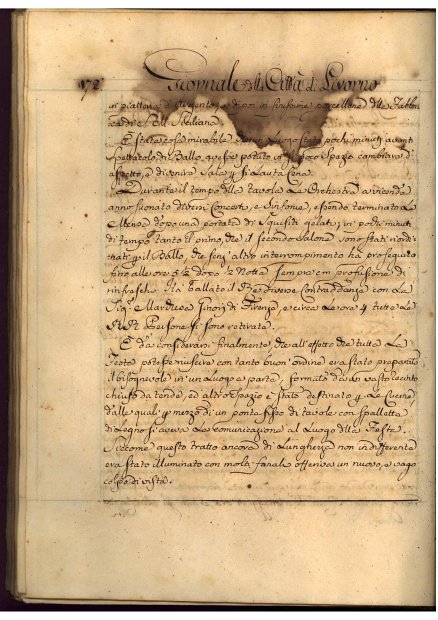 172 Giornale della Città di Livorno
in piattini d'Argento, e dipoi in finissime porcellane della Fabbri
ca di S.
È stata cosa mirabile luogo stato pochi minuti avanti
spettacolo di Ballo, avesse potuto in poco Spazio cambiare d'
aspetto, e divenire Sala p si Lauta Cena.
Durante il tempo della tavola Le Orchestra a vicenda
anno suonato diversi Concerti, e Sinfonie, essendo terminato Le
dopo una portata di Squisiti gelati, in pochi minuti
di tempo tanto il primo, che il secondo Salone sono stati riordi
nati p il Ballo, che senz'altro interrompimento ha proseguito
fino alle ore 5½ dopo ½ Notte sempre con profusione di
rinfreschi. Ha ballato il Re diverse Contraddanze con La
Sigra Marchesa Ginori di Firenze, e circa Le ore 4 tutte Le
RR. Persone si sono retirate.
È da considerarsi finalmente, che all'effetto che tutte Le
Feste potesse riuscire con tanto buon'ordine era stato preparato
il bisognevole in un Luogo a parte, formato d'un vasto recinto
chiuso da tende, ed altro Spazio è stato destinato p Le Cucine
dalle quali p mezzo di un ponte fisso di tavole con spallette
di Legno si aveva La comunicazione al Luogo delle Feste.
Siccome questo tratto ancora di Lunghezza non indifferente
era stato illuminato con molti fanali offeriva un nuovo, e vago
colpo di vista.